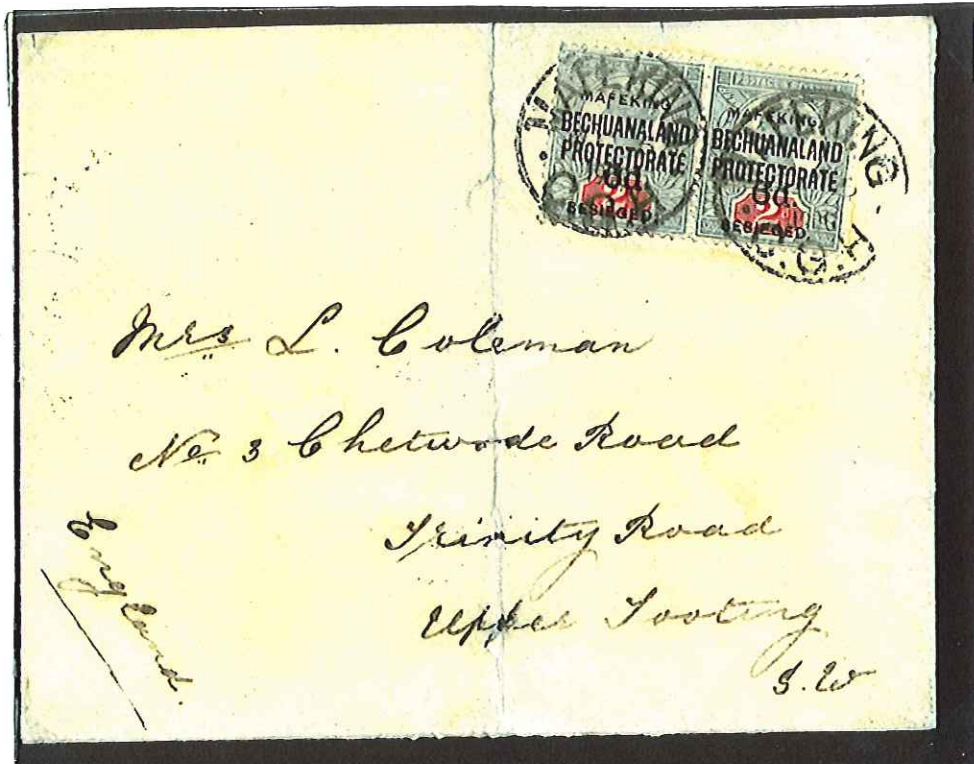 MAFEKING
MAFEKING,
BECHUANALAND
PROTECTORATE
6d.
2d
BESIEGED.
MAFEKING,
BECHUANALAND
PROTECTORATE
6d.
2d
BESIEGED.
MAFEKING
C.G.H
Mrs L. Coleman
No. 3 Chetwode Road
Trinity Road
Upper Tooting
S. W
England.